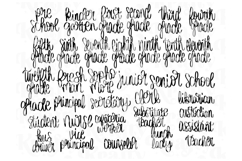 pre kinder first second third fourth
school garden grade grade grade grade
fifth sixth seventh eighth ninth tenth eleventh
grade grade grade grade grade grade grade
twelfth fresh sopho junior senior school
grade man more clerk librarian
grade principal secretary substitute custodian
student nurse cafeteria teacher assistant
bus vice worker lunch teacher
driver principal counselor lady